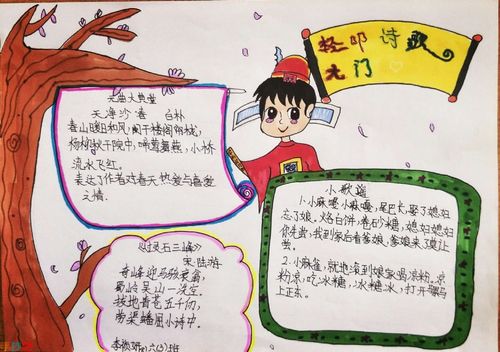 轻叩诗歌
大门
元曲大典堂
天净沙春 白朴
春山暖日和风,阑干楼阁帘栊,
杨柳秋千院中,啼莺舞燕,小桥
流水飞红。
表达了作者对春天热爱与喜爱
之情。
《过灵石三峰》
宋 陆游
奇峰迎马骇衰翁,
蜀岭吴山一洗空。
拔地青苍五千仞,
劳渠蟠屈小诗中。
六(3)班
小歌谣
1.小麻嘎,小麻嘎,尾巴长,娶了媳妇
忘了娘。烙白饼,卷砂糖,媳妇媳妇
你先尝,我到家后看爹娘,爹娘来了莫让
尝。
2.小麻雀,就地滚,
粉凉,吃冰糖,冰糖冰,打开
上正东。